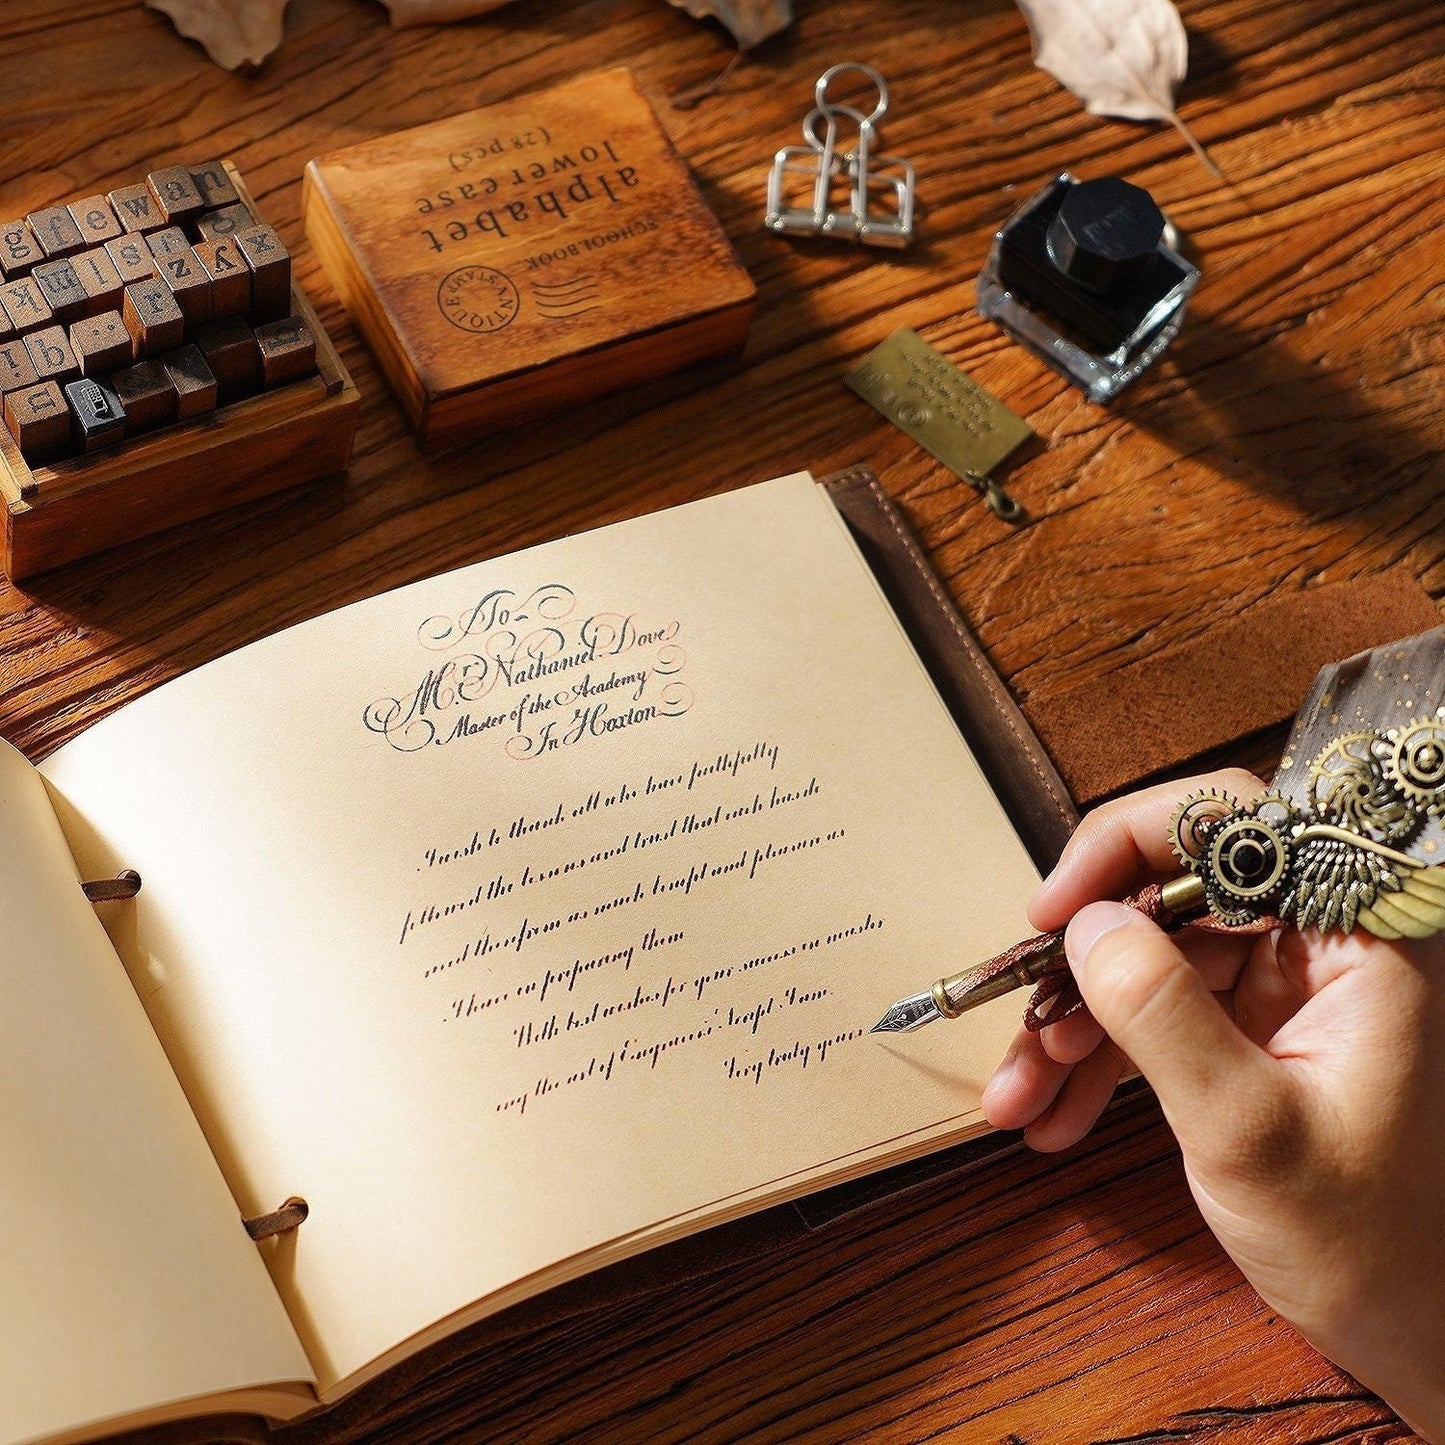 To
Mr. Nathaniel Dove
Master of the Academy
In Hoxton
I wish to thank all who have faithfully
followed the lessons and trust that each hand
in as much and pleasure as
I have in preparing them
With best wishes for your success in
the art of Engrossers' Script I am.
Very truly yours
alphabet
lower case
(28 pcs)
SCHOOLBOOK
ANTIQUE STAMPS
g f e w a n
k m l s
z y x
r
i q
u